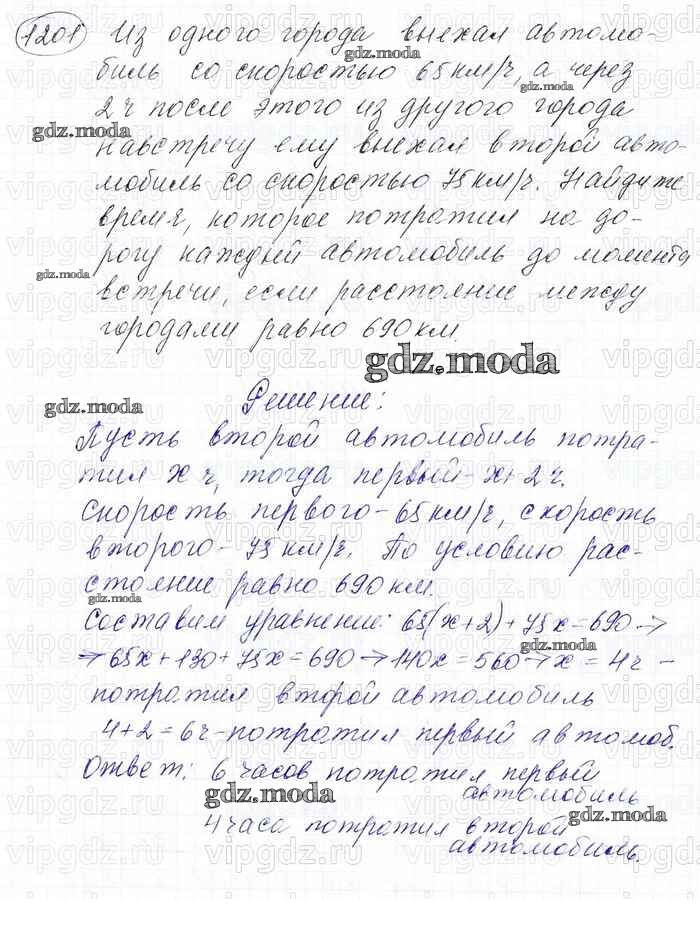 1201 Из одного города выехал автомо-
биль со скоростью 65 км/ч, а через
2 ч после этого из другого города
навстречу ему выехал второй авто-
мобиль со скоростью 75 км/ч. Найдите
время, которое потратил на до-
рогу каждый автомобиль до момента
встречи, если расстояние между
городами равно 690 км.
Решение:
Пусть второй автомобиль потра-
тил x ч, тогда первый - x+2 ч.
Скорость первого - 65 км/ч, скорость
второго - 75 км/ч. По условию рас-
стояние равно 690 км.
Составим уравнение: 65(x+2)+75x=690 →
→ 65x+130+75x=690 → 140x=560 → x=4ч -
потратил второй автомобиль
4+2=6ч - потратил первый автомоб.
Ответ: 6 часов потратил первый
автомобиль
4 часа потратил второй
автомобиль.
gdz.moda
gdz.moda
gdz.moda
gdz.moda
gdz.moda
gdz.moda
gdz.moda
gdz.moda
vipgdz.ru